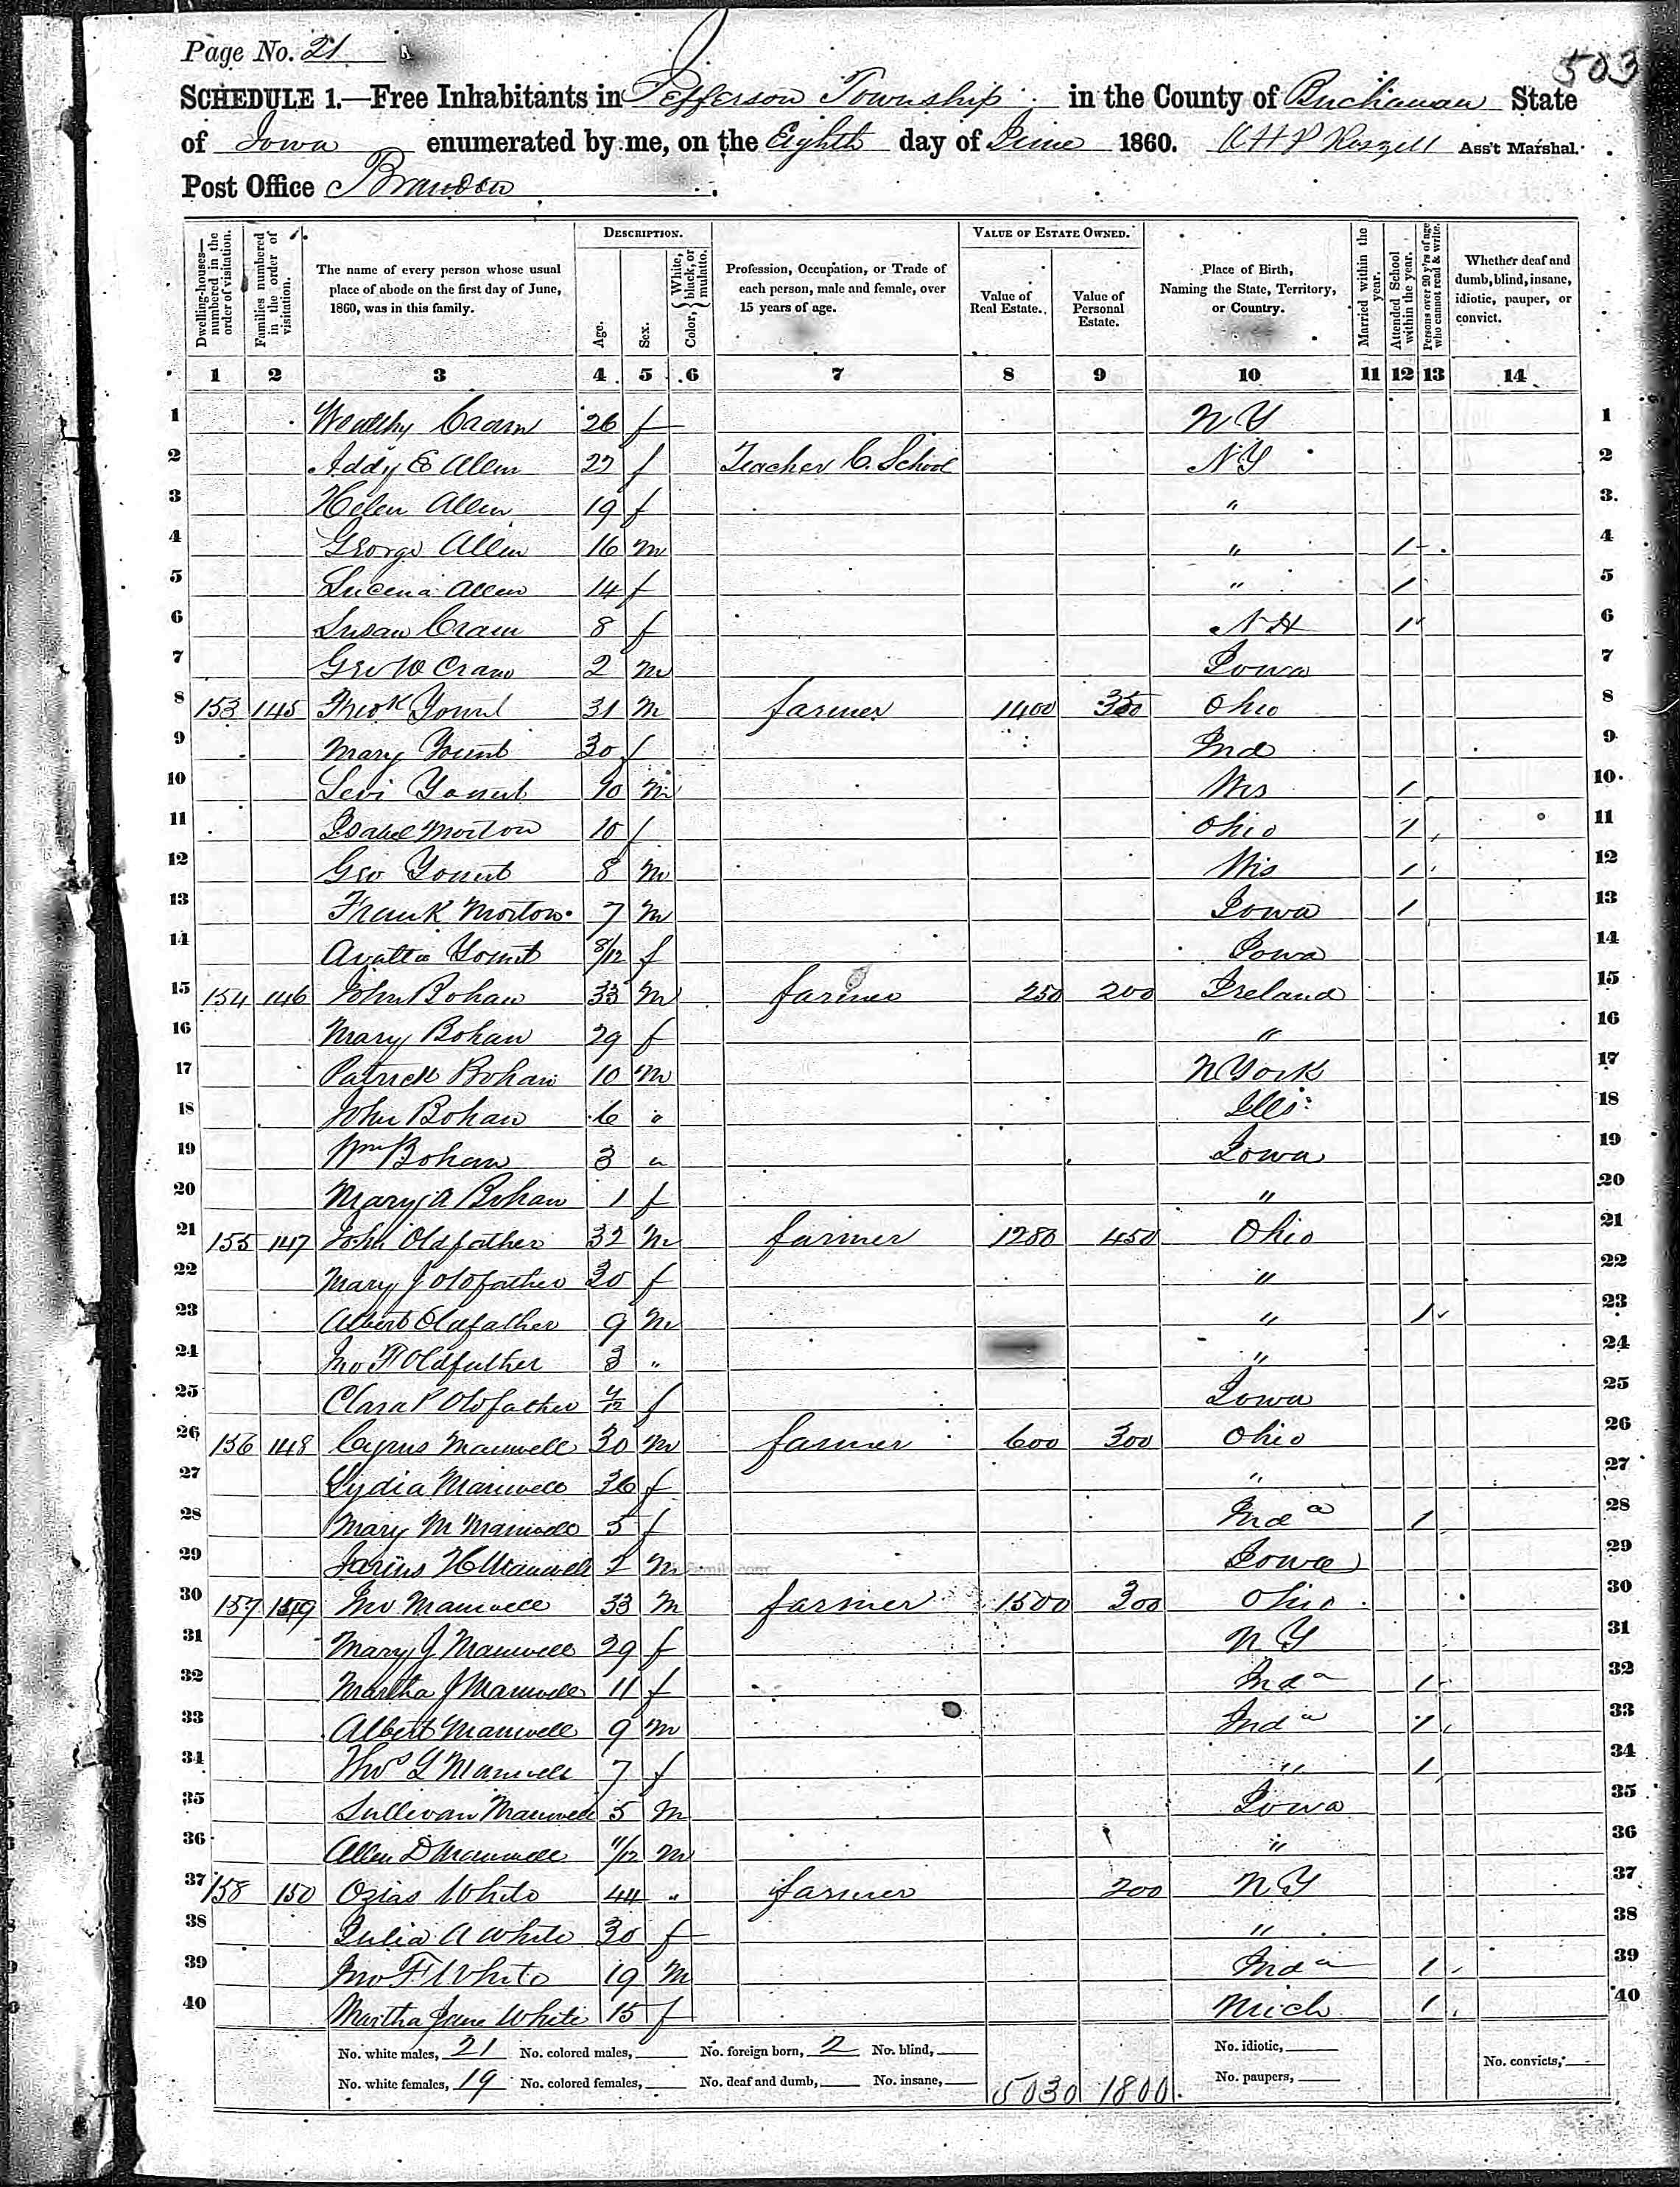 Page No. 21
503
SCHEDULE 1.—Free Inhabitants in Jefferson Township in the County of Buchanan State
of Iowa enumerated by me, on the Eighth day of June 1860. Ass't Marshal.
Post Office Brandon
Dwelling-houses—numbered in the order of visitation.
Families numbered in the order of visitation.
The name of every person whose usual place of abode on the first day of June, 1860, was in this family.
DESCRIPTION.
Age.
Sex.
Color, { White, black, or mulatto.
Profession, Occupation, or Trade of each person, male and female, over 15 years of age.
VALUE OF ESTATE OWNED.
Value of Real Estate.
Value of Personal Estate.
Place of Birth, Naming the State, Territory, or Country.
Married within the year.
Attended School within the year.
Persons over 20 y'rs of age who cannot read & write.
Whether deaf and dumb, blind, insane, idiotic, pauper, or convict.
1 2 3 4 5 6 7 8 9 10 11 12 13 14
1 Cram 26 f N Y 1
2 Addy E Allen 22 f Teacher C. School N Y 2
3 Helen Allen 19 f " 3
4 George Allen 16 m " 1 4
5 Lucena Allen 14 f " 1 5
6 Susan Cram 8 f N H 1 6
7 Geo W Cram 2 m Iowa 7
8 153 145 Yount 31 m farmer 1400 350 Ohio 8
9 Mary Yount 30 f Ind 9
10 Levi Yount 10 m Wis 1 10
11 Isabel Morton 10 f Ohio 1 11
12 Geo Yount 8 m Wis 1 12
13 Frank Morton 7 m Iowa 1 13
14 Yount 8/12 f Iowa 14
15 154 146 John Bohan 33 m farmer 250 200 Ireland 15
16 Mary Bohan 29 f " 16
17 Patrick Bohan 10 m N York 17
18 John Bohan 6 " Ills 18
19 Wm Bohan 3 " Iowa 19
20 Mary A Bohan 1 f " 20
21 155 147 John Oldfather 32 m farmer 1280 450 Ohio 21
22 Mary J Oldfather 30 f " 22
23 Albert Oldfather 9 m " 1 23
24 Jno F Oldfather 3 " " 24
25 Clara P Oldfather f Iowa 25
26 156 148 Cyrus Manwell 30 m farmer 600 300 Ohio 26
27 Lydia Manwell 36 f " 27
28 Mary M Manwell 5 f Inda 1 28
29 H Manwell 2 m Iowa 29
30 157 149 Jno Manwell 33 m farmer 1500 300 Ohio 30
31 Mary J Manwell 29 f N Y 31
32 Martha J Manwell 11 f Inda 1 32
33 Albert Manwell 9 m Inda 1 33
34 Thos L Manwell 7 f " 1 34
35 Sullivan Manwell 5 m Iowa 35
36 Allen D Manwell 11/12 m " 36
37 158 150 Ozias White 44 " farmer 200 N Y 37
38 Julia A White 30 f " 38
39 Jno F White 19 m Inda 1 39
40 Martha Jane White 15 f Mich 1 40
No. white males, 21 No. colored males, No. foreign born, 2 No. blind, No. idiotic, No. convicts,
No. white females, 19 No. colored females, No. deaf and dumb, No. insane, 5030 1800 No. paupers,